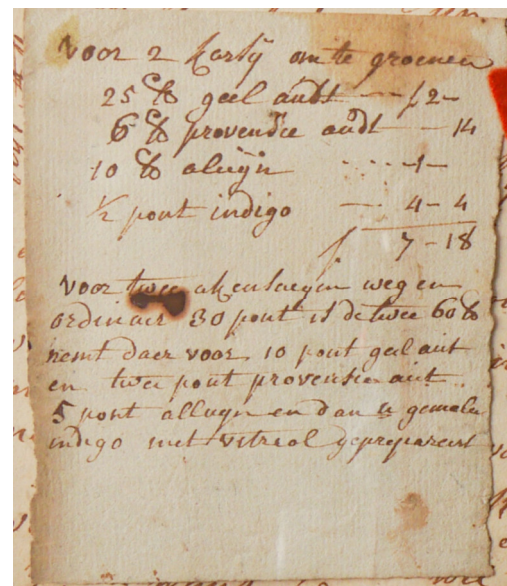 voor 2 karsij om te groenen
25 ℔ geel audt -- f 2-
6 ℔ provendie audt - 14
10 ℔ aluijn ---- 1-
½ pont indigo -- 4-4
f. 7-18
voor twee wegen
ordinair 30 pont is de twee 60 ℔
nemt daer voor 10 pont geel aut
en twee pont provensie aut
5 pont alluyn en dan u gemale
indigo met vitreol geprepareert